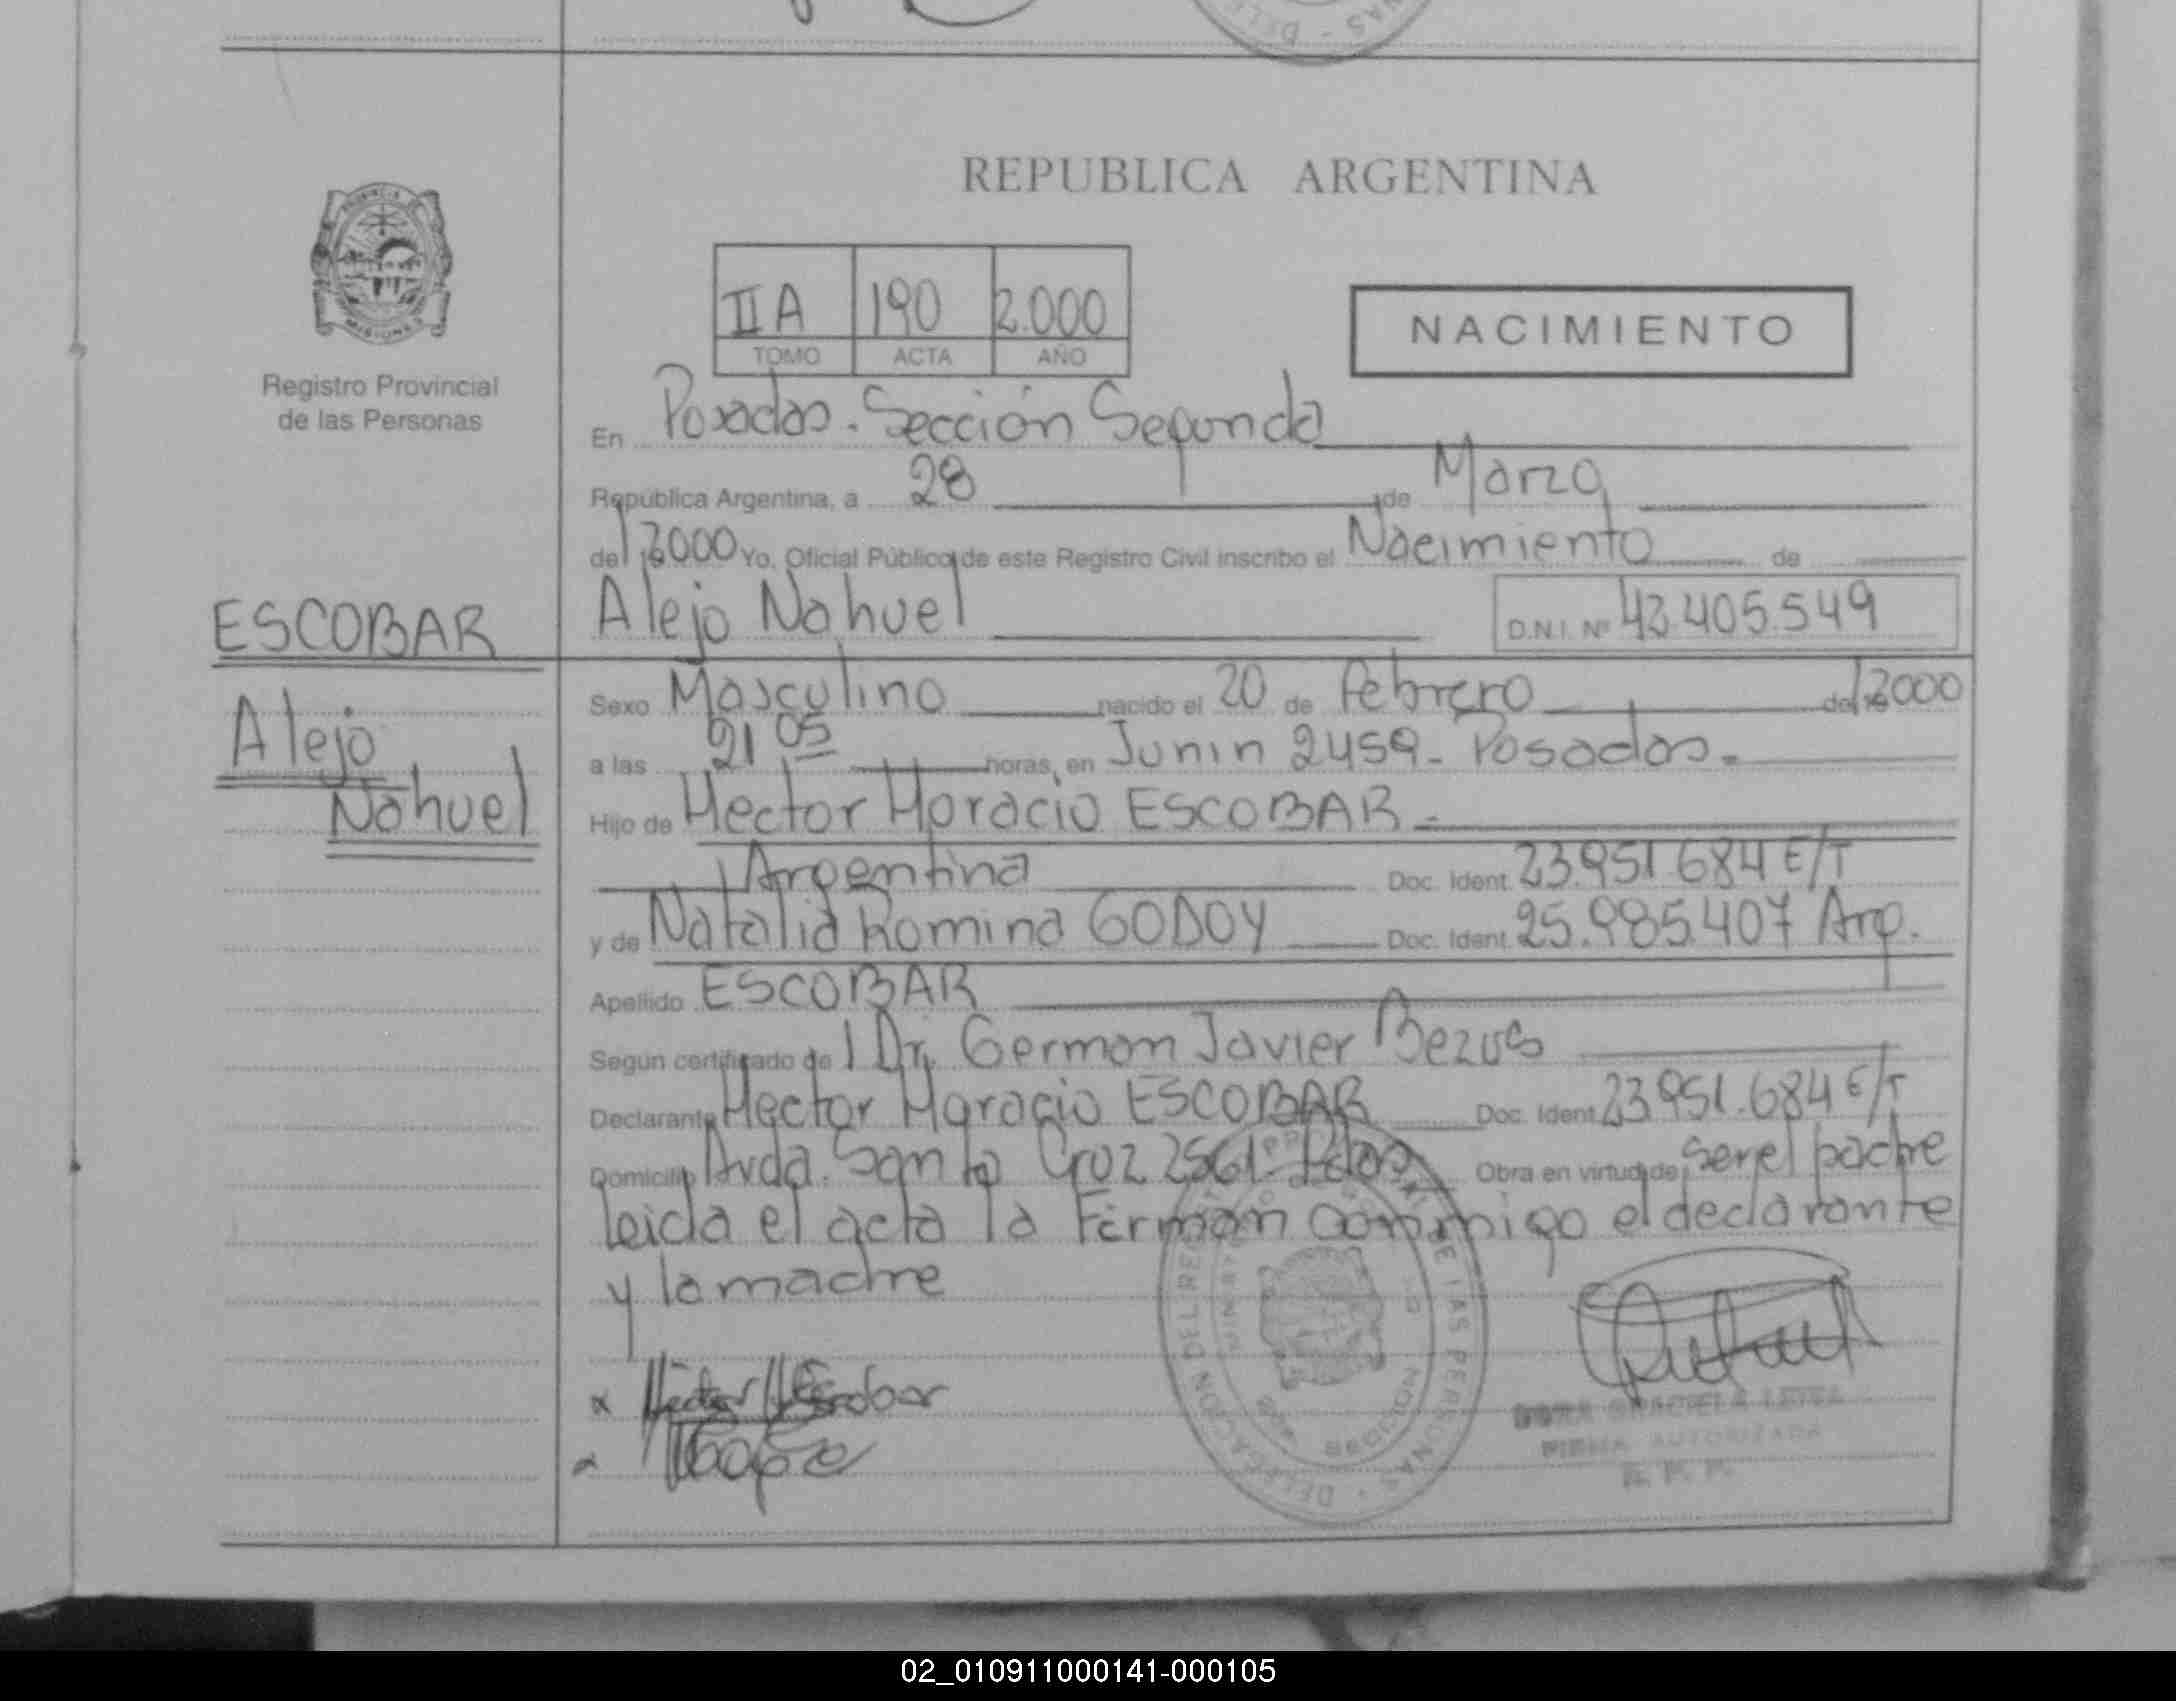 REPUBLICA ARGENTINA
PROVINCIA
MISIONES
Registro Provincial
de las Personas
II A 190 2.000
TOMO ACTA AÑO
NACIMIENTO
En Posadas. Sección Segunda
República Argentina, a 28 de Marzo
del 2000 Yo, Oficial Público de este Registro Civil inscribo el Nacimiento de
ESCOBAR
Alejo Nahuel
D.N.I. Nº 43.405.549
Alejo
Nahuel
Sexo Masculino nacido el 20 de Febrero del 2000
a las 21 05 horas, en Junin 2459 - Posadas.-
Hijo de Hector Horacio ESCOBAR.-
Argentina Doc. Ident. 23.951.684 E/T
y de Natalia Romina GODOY Doc. Ident. 25.985.407 Arg.
Apellido ESCOBAR
Según certificado de l Dr. German Javier Bezus
Declarante Hector Horacio ESCOBAR Doc. Ident. 23.951.684 E/T
Domicilio Avda. Santa Cruz 2561. Pdas Obra en virtud de ser el padre
leida el acta la Firman conmigo el declarante
y la madre
x Hector H Escobar
DORA GRACIELA LEIVA
FIRMA AUTORIZADA
R. P. P.
02_010911000141-000105